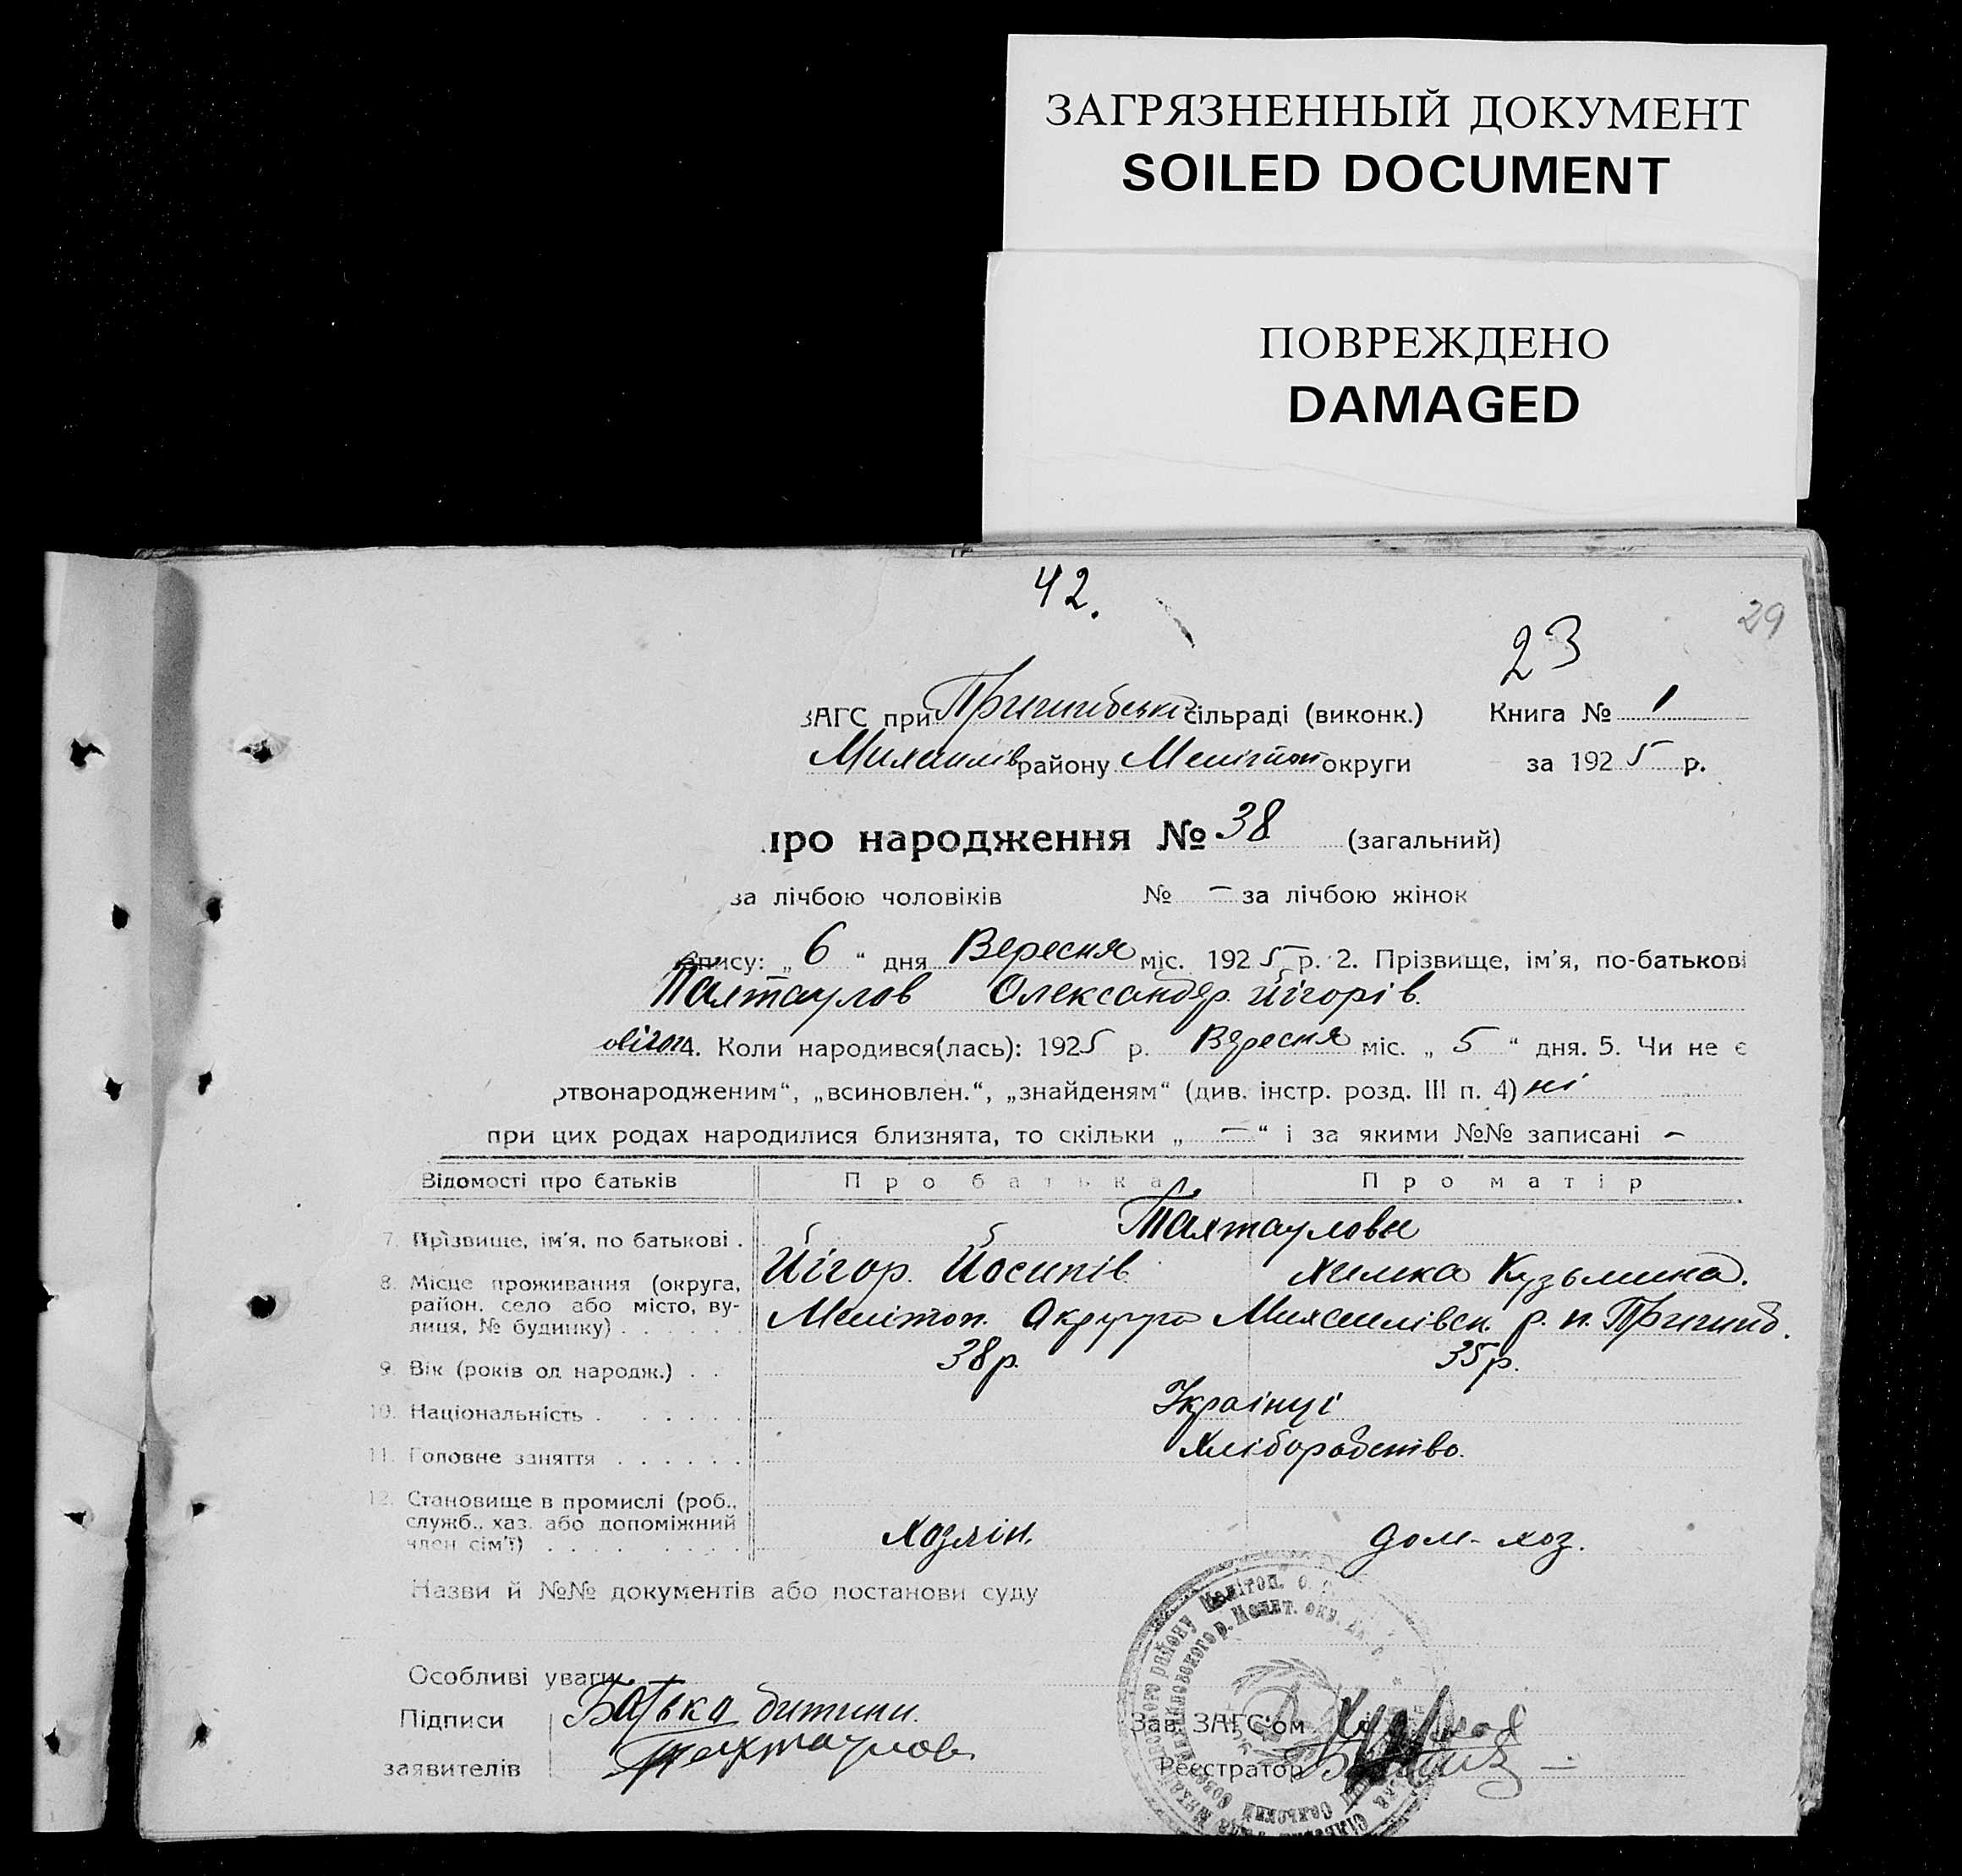 ЗАГРЯЗНЕННЫЙ ДОКУМЕНТ
SOILED DOCUMENT
ПОВРЕЖДЕНО
DAMAGED
42.
29
23
ЗАГС при Пришибські сільраді (виконк.) Книга № 1
Михайлів району Меліtоп округи за 1925 р.
про народження № 38 (загальний)
за лічбою чоловіків № — за лічбою жінок
запису: „6“ дня Вересня міс. 1925 р. 2. Прізвище, ім'я, по-батькові
Тахтаулов Олександр. Йігорів.
4. Коли народився(лась): 1925 р. Вересня міс. „5“ дня. 5. Чи не є
ртвонародженим“, „всиновлен.“, „знайденям“ (див. інстр. розд. III п. 4) ні
при цих родах народилися близнята, то скільки „—“ і за якими №№ записані —
Відомості про батьків Про батька Про матір
Тахтауловы
7. Прізвище, ім'я, по батькові . Йігор. Йосипів. Химка Кузьмина.
8. Місце проживання (округа,
район, село або місто, ву-
лиця, № будинку) . . . . . . Мелітоп. Округа Михайлівск. р. с. Пришиб.
9. Вік (років од народж.) . . 38 р. 35 р.
10. Національність . . . . . . Українці
11. Головне заняття . . . . . . Хліборобство.
12. Становище в промислі (роб.,
служб., хаз. або допоміжний
член сім'ї) . . . . . . . . . Хозяін. дом-хоз.
Назви й №№ документів або постанови суду
Особливі уваги
Підписи Батька дитини.
заявителів Тахтаулов
Зав. ЗАГС'ом
Реєстратор